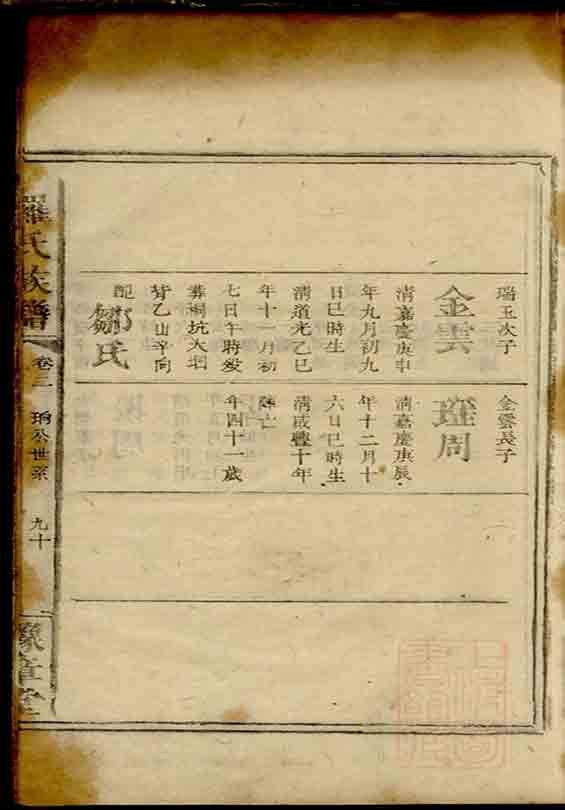 瑞玉次子
金雲
清嘉慶庚申
年九月初九
日巳時生
清道光乙巳
年十一月初
七日午時歿
葬桐坑大垇
背乙山辛向
配
鄒氏
金雲長子
瑾周
清嘉慶庚辰
年十二月十
六日巳時生
清咸豐十年
陣亡
年四十一歲
羅氏族譜
卷三
世系
九十
豫章堂